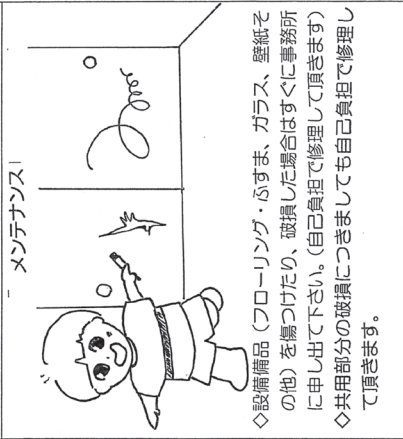 メンテナンス
◇設備備品（フローリング・ふすま、ガラス、壁紙そ
の他）を傷つけたり、破損した場合はすぐに事務所
に申し出て下さい。（自己負担で修理して頂きます）
◇共用部分の破損につきましても自己負担で修理し
て頂きます。